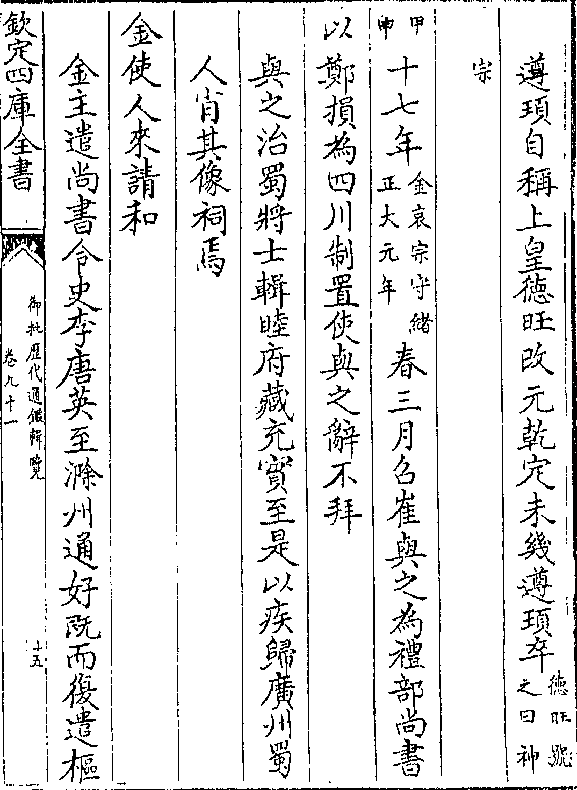 遵頊自稱上皇德旺改元乾定未幾遵頊卒德旺號之曰神
宗
甲申十七年金哀宗守緒正大元年春三月召崔與之為禮部尚書
以鄭損為四川制置使與之辭不拜
與之治蜀將士輯睦府藏充實至是以疾歸廣州蜀
人肖其像祠焉
金使人來請和
金主遣尚書令史李唐英至滁州通好既而復遣樞
欽定四庫全書
御批歷代通鑑輯覽
卷九十一
十五